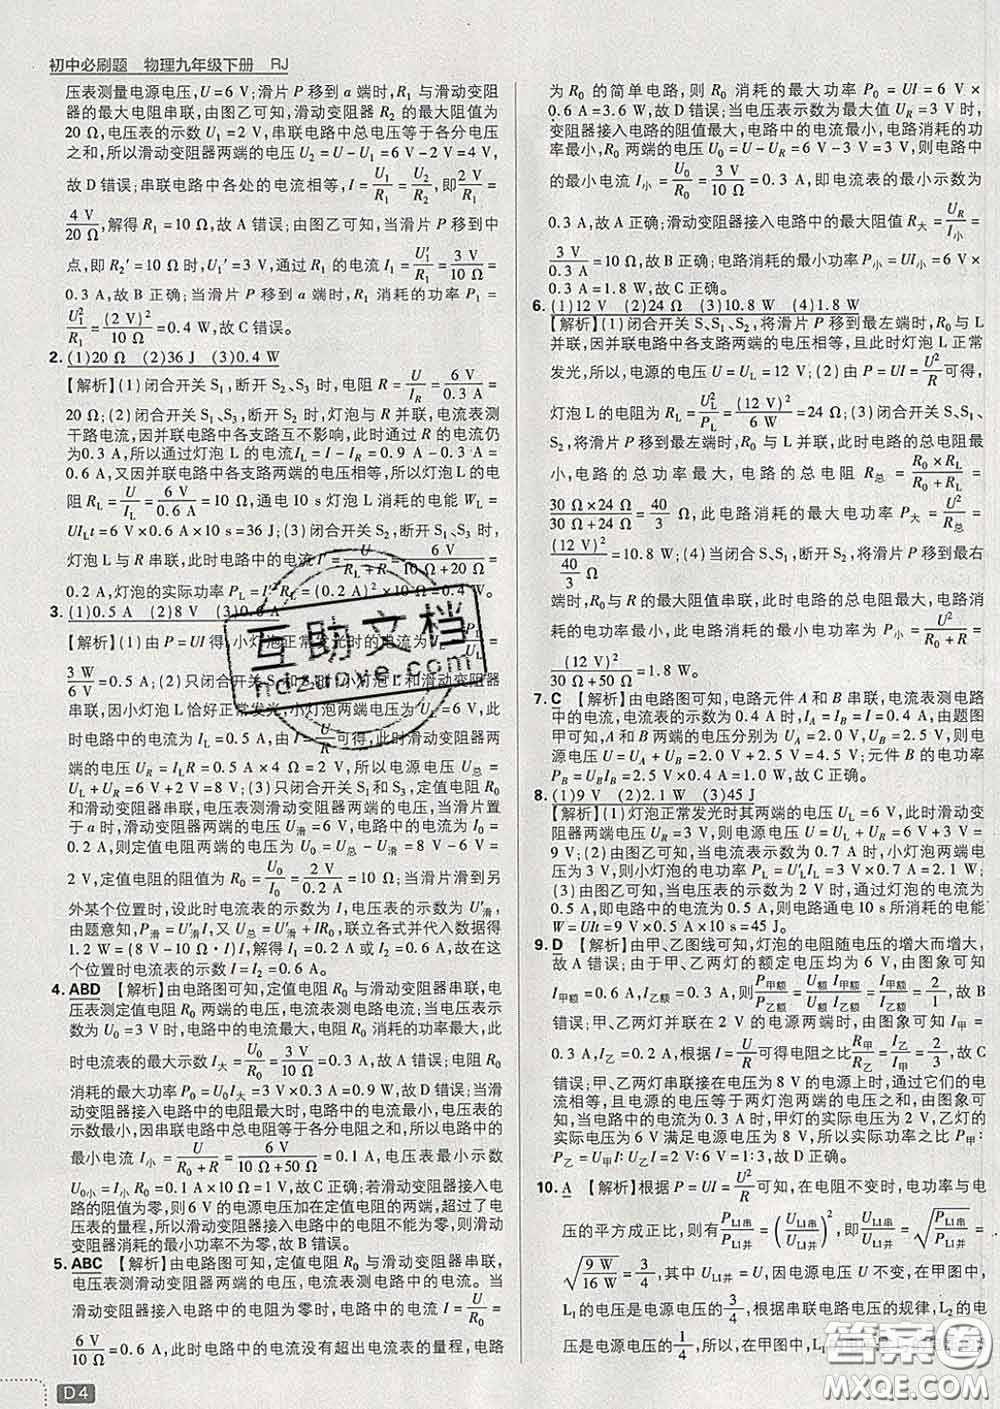 初中必刷题 物理九年级下册 RJ
压表测量电源电压，U=6 V；滑片 P 移到 a 端时，R₁ 与滑动变阻
器的最大电阻串联，由图乙可知，滑动变阻器 R₂ 的最大电阻为
20 Ω，电压表的示数 U₁=2 V，串联电路中总电压等于各分电压
之和，所以滑动变阻器两端的电压 U₂=U-U₁=6 V-2 V=4 V，
故 D 错误；串联电路中各处的电流相等，I=U₁/R₁=U₂/R₂，即 2 V/R₁=
4 V/20 Ω，解得 R₁=10 Ω，故 A 错误；由图乙可知，滑片 P 移到中
点，即 R₂′=10 Ω 时，U₁′=3 V，通过 R₁ 的电流 I₁=U₁′/R₁=3 V/10 Ω=
0.3 A，故 B 正确；当滑片 P 移到 a 端时，R₁ 消耗的功率 P₁=
U₁²/R₁=(2 V)²/10 Ω=0.4 W，故 C 错误。
2. (1)20 Ω (2)36 J (3)0.4 W
【解析】(1)闭合开关 S₁，断开 S₂、S₃ 时，电阻 R=U/I_R=6 V/0.3 A=
20 Ω；(2)闭合开关 S₁、S₃，断开 S₂ 时，灯泡与 R 并联，电流表测
干路电流，因并联电路中各支路互不影响，此时通过 R 的电流仍
为0.3 A，所以通过灯泡 L 的电流 I_L=I-I_R=0.9 A-0.3 A=
0.6 A，又因并联电路中各支路两端的电压相等，所以灯泡 L 的电
阻 R_L=U/I_L=6 V/0.6 A=10 Ω，通电 10 s 灯泡 L 消耗的电能 W_L=
UI_Lt=6 V×0.6 A×10 s=36 J；(3)闭合开关 S₂，断开 S₁、S₃ 时，
灯泡 L 与 R 串联，此时电路中的电流 I′=U/(R_L+R)=6 V/(10 Ω+20 Ω)=
0.2 A，灯泡的实际功率 P_L=I′²R_L=(0.2 A)²×10 Ω=0.4 W。
3. (1)0.5 A (2)8 V (3)0.6 A
【解析】(1)由 P=UI 得，小灯泡正常发光时的电流为
3 W/6 V=0.5 A；(2)只闭合开关 S 和 S₁时，小灯泡 L 与滑动变阻器
串联，因小灯泡 L 恰好正常发光，小灯泡两端电压为 U_L=6 V，此
时电路中的电流为 I_L=0.5 A，由 I=U/R可得，此时滑动变阻器两
端的电压 U_R=I_LR=0.5 A×4 Ω=2 V，所以电源电压 U总=
U_L+U_R=6 V+2 V=8 V；(3)只闭合开关 S 和 S₃，定值电阻 R₀
和滑动变阻器串联，电压表测滑动变阻器两端的电压，当滑片置
于 a 时，滑动变阻器两端的电压 U滑=6 V，电路中的电流为 I₀=
0.2 A，则定值电阻两端的电压为 U₀=U总-U滑=8 V-6 V=
2 V，定值电阻的阻值为 R₀=U₀/I₀=2 V/0.2 A=10 Ω。当滑片滑到另
外某个位置时，设此时电流表的示数为 I，电压表的示数为 U′滑，
由题意知，P=U′滑I，又 U总=U′滑+IR₀，联立各式并代入数据得
1.2 W=(8 V-10 Ω·I)I，解得 I₁=0.2 A 或 I₂=0.6 A，故在这
个位置时电流表的示数 I=I₂=0.6 A。
4. ABD 【解析】由电路图可知，定值电阻 R₀ 与滑动变阻器串联，电
压表测定值电阻 R₀ 两端的电压，电流表测电路中的电流。当电压表示
数为 U₀=3 V 时，电路中的电流最大，电阻 R₀ 消耗的功率最大，此
时电流表的最大示数 I大=U₀/R₀=3 V/10 Ω=0.3 A，故 A 错误；电阻 R₀
消耗的最大功率为 P₀=U₀I大=3 V×0.3 A=0.9 W，故 D 错误；当
滑动变阻器接入电路中的电阻最大时，电路中的电流最小，电压表的
示数最小，因串联电路中总电阻等于各分电阻之和，所以电路中的
最小电流 I小=U/(R₀+R)=6 V/(10 Ω+50 Ω)=0.1 A，电压表示数最小值
U₀小=I小R₀=0.1 A×10 Ω=1 V，故 C 正确；若滑动变阻器接入电
路的阻值为零，6 V 的电源电压加在定值电阻的两端，超过了电
压表的量程，所以滑动变阻器接入电路中的电阻不能为零，则滑动
变阻器消耗的最小功率不为零，故 B 错误。
5. ABC 【解析】由电路图可知，定值电阻 R₀ 与滑动变阻器串联，
电压表测滑动变阻器两端的电压，电流表测电路中的电流。当
滑动变阻器接入电路中的电阻为零时，电路中的电流 I=U/R₀=
6 V/10 Ω=0.6 A，此时电路中的电流没有超出电流表的量程，电路
D4
为 R₀ 的简单电路，则 R₀ 消耗的最大功率为 P₀=UI=6 V×
0.6 A=3.6 W，故 D 错误；当电压表示数为最大值 U_R=3 V 时，
变阻器接入电路的阻值最大，电路中的电流最小，电路消耗的功率
最小，R₀ 两端的电压为 U₀=U-U_R=6 V-3 V=3 V，则电路中
的最小电流 I小=U₀/R₀=3 V/10 Ω=0.3 A，即电流表的最小示数为
0.3 A，故 A 正确；滑动变阻器接入电路中的最大阻值 R大=U_R/I小=
3 V/0.3 A=10 Ω，故 B 正确；电路消耗的最小功率 P小=UI小=6 V×
0.3 A=1.8 W，故 C 正确。
6. (1)12 V (2)24 Ω (3)10.8 W (4)1.8 W
【解析】(1)闭合开关 S、S₁、S₂，将滑片 P 移到最左端时，R₀与 L
并联，因并联电路中各支路两端的电压相等，且此时灯泡 L 正常
发光，所以，电源的电压 U=U_L=12 V；(2)由 P=UI=U²/R可得，
灯泡 L 的电阻 R_L=U_L²/P_L=(12 V)²/6 W=24 Ω；(3)闭合开关 S、S₁、
S₂，将滑片 P 移到最左端时，R₀与 L 并联，此时电路的总电阻最
小，电路的总功率最大，电路的总电阻 R总=R₀×R_L/(R₀+R_L)=
30 Ω×24 Ω/(30 Ω+24 Ω)=40/3 Ω，此电路消耗的最大电功率 P大=U²/R总=
(12 V)²/(40/3 Ω)=10.8 W；(4)当闭合 S、S₁，断开 S₂，将滑片 P 移到最右
端时，R₀ 与 R 的最大阻值串联，此时电路的总电阻最大，电路消耗
的电功率最小，此电路消耗的最小电功率为 P小=U²/(R₀+R)=
(12 V)²/(30 Ω+50 Ω)=1.8 W。
7. C 【解析】由电路图可知，电路元件 A 和 B 串联，电流表测电路
中的电流，电流表的示数为 0.4 A 时，I_A=I_B=I=0.4 A，由题图
甲可知，A 和 B 两端的电压分别为 U_A=2.0 V、U_B=2.5 V，则电
源电压 U=U_A+U_B=2.0 V+2.5 V=4.5 V；元件 B 的电功率
P_B=U_BI_B=2.5 V×0.4 A=1.0 W，故选 C。
8. (1)9 V (2)2.1 W (3)45 J
【解析】(1)灯泡正常发光时其两端的电压 U_L=6 V，此时滑动变
阻器两端电压 U_R=3 V，则电源电压 U=U_L+U_R=6 V+3 V=
9 V；(2)由图乙可知，当电流表示数为 0.7 A 时，小灯泡两端电压
为3 V，则小灯泡的实际功率 P=U′_LI_L=3 V×0.7 A=2.1 W；
(3)由图乙可知，当电流表的示数为 0.5 A 时，通过灯泡的电流为
0.5 A，则电路中的电流为 0.5 A，则电路通电 10 s 所消耗的电能为
W=UIt=9 V×0.5 A×10 s=45 J。
9. D 【解析】由甲、乙图线可知，灯泡的电阻随电压的增大而增大，
故 A 错误；由于甲、乙两灯的额定电压均为 6 V，由图象可知
I甲额=0.6 A，I乙额=0.3 A，则P甲额/P乙额=U额I甲额/U额I乙额=2/1，故 B
错误；甲、乙两灯并联在 2 V 的电源两端时，由图象可知 I甲=
0.3 A，I乙=0.2 A，由 I=U/R可得电阻之比R甲/R乙=I乙/I甲=2/3，故 C
错误；甲、乙两灯串联接在电压为 8 V 的电源上时，通过它们的电
流相等，且电源的电压等于两灯泡两端的电压之和，由图象可
知，当电路中的电流为 0.3 A 时，甲灯的实际电压为 2 V，乙灯的
实际电压为 6 V 满足电源电压为 8 V，所以实际功率之比 P甲∶
P乙=U甲I∶U乙I=2 V∶6 V=1∶3，故选 D。
10. A 【解析】根据 P=UI=U²/R可知，在电阻不变时，电功率与电
压的平方成正比，则有P_L1串/P_L1并=(U_L1串/U_L1并)²，即U_L1串/U_L1并=√(P_L1串/P_L1并)=
√(9 W/16 W)=3/4，其中，U_L1并=U，因电源电压 U 不变，在甲图中，
L₁的电压是电源电压的3/4，根据串联电路电压的规律，L₂的电压
是电源电压的1/4，所以，在甲图中，L₁
互助文档
hdzuoye.com
答案圈
MXQE.COM